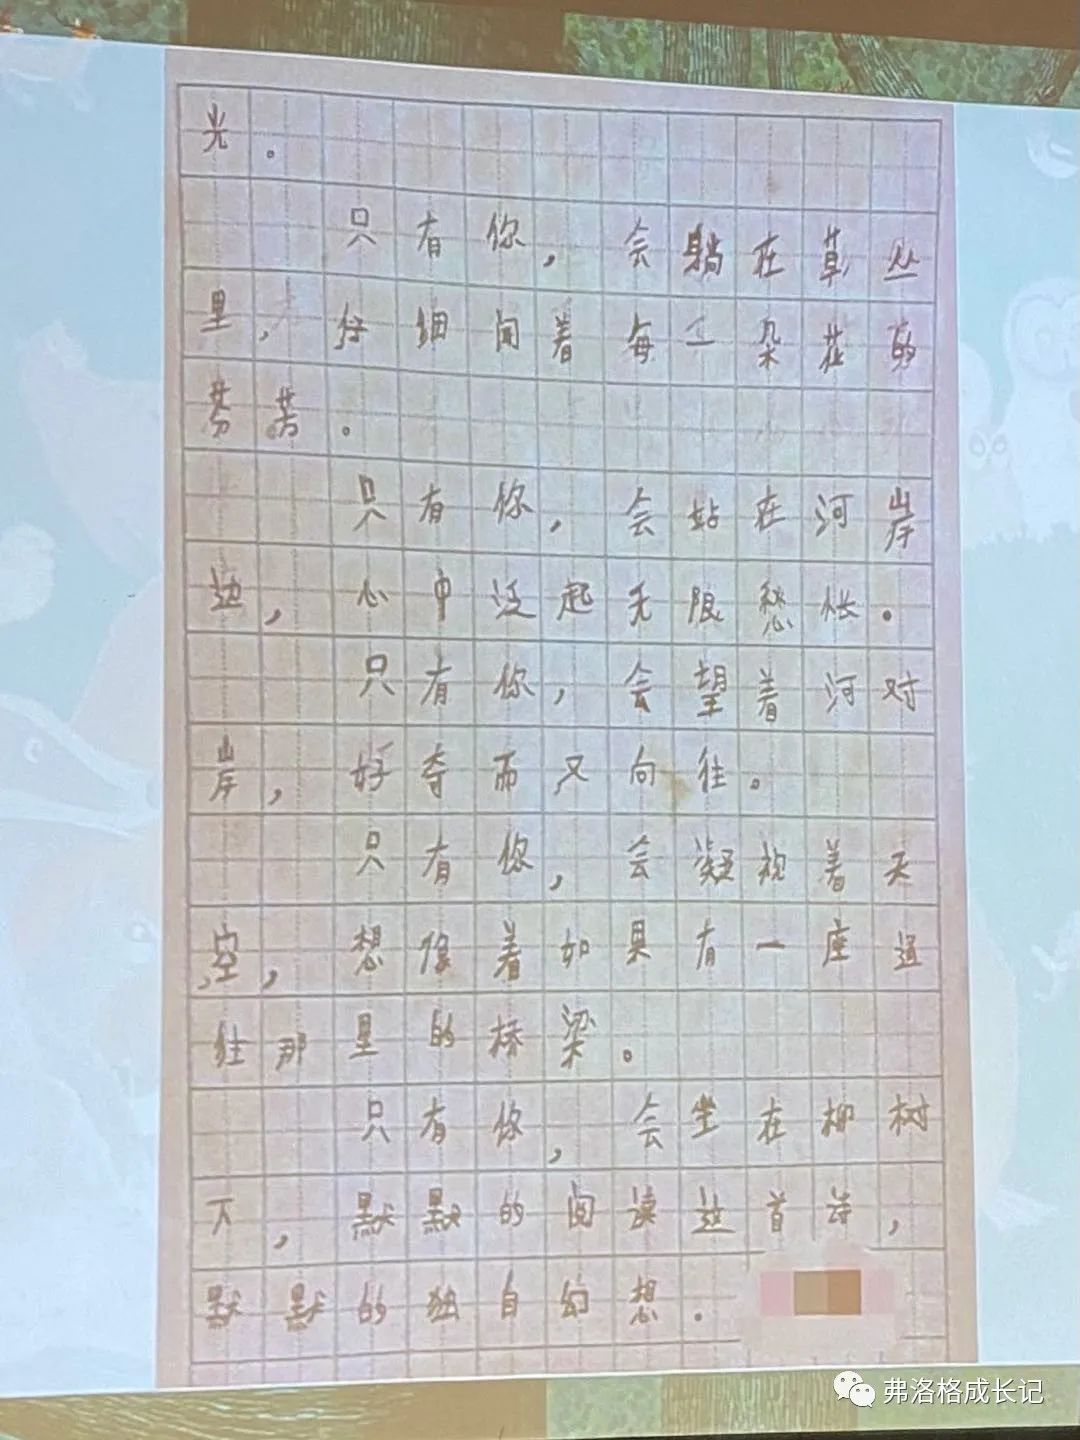 光。
只有你，会躺在草丛
里，仔细闻着每一朵花的
芬芳。
只有你，会站在河岸
边，心中泛起无限愁怅。
只有你，会望着河对
岸，好奇而又向往。
只有你，会凝视着天
空，想像着如果有一座通
往那里的桥梁。
只有你，会坐在柳树
下，默默的阅读这首诗，
默默的独自幻想。
弗洛格成长记